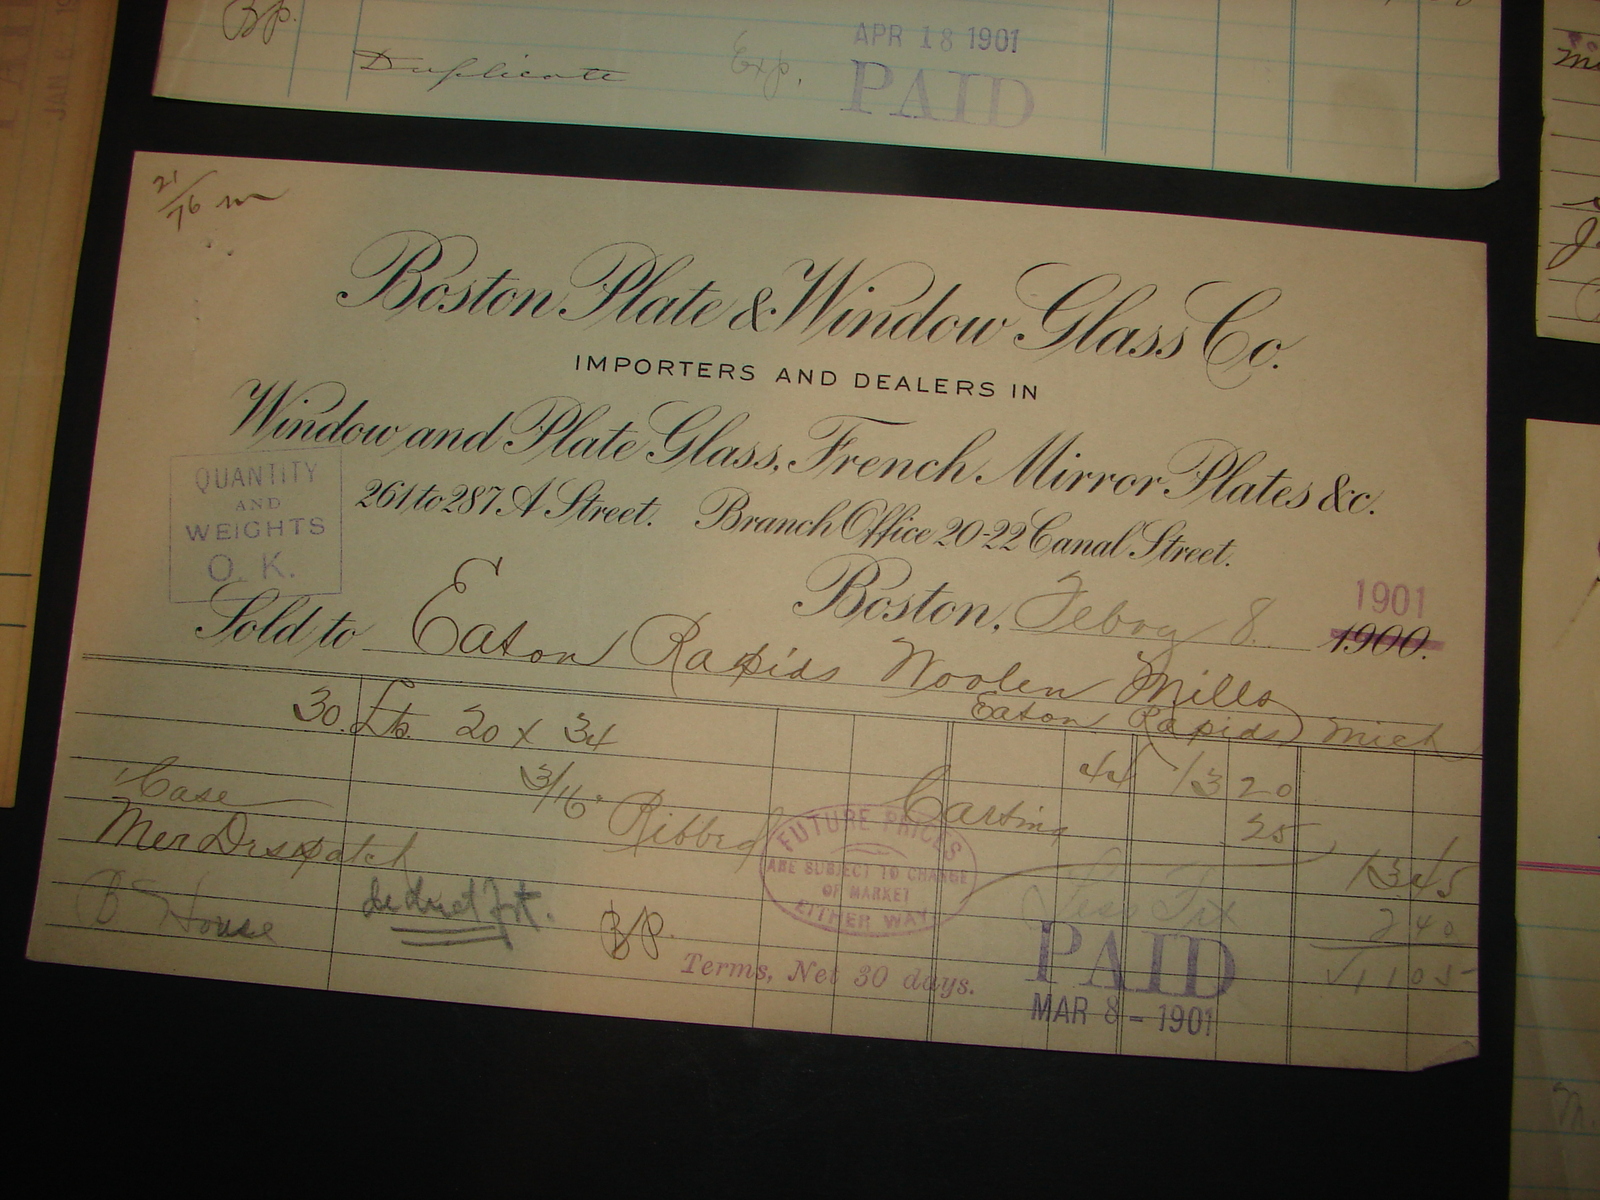 BP.
APR 18 1901
Duplicate Exp.
PAID
21/76 m
Boston Plate & Window Glass Co.
IMPORTERS AND DEALERS IN
Window and Plate Glass, French Mirror Plates &c.
261 to 287 A Street. Branch Office 20-22 Canal Street.
QUANTITY
AND
WEIGHTS
O. K.
Boston, Febry 8. 1900. 1901
Sold to Eaton Rapids Woolen Mills
Eaton Rapids Mich
30. Lts. 20 x 34 44 13 20
3/16" Ribbed Casting
Case 25
Mer Dispatch 13 45
FUTURE PRICES
ARE SUBJECT TO CHANGE
OF MARKET
EITHER WAY
B. House deduct frt. BP. Less Frt 2 40
11 05
Terms, Net 30 days.
PAID
MAR 8 - 1901